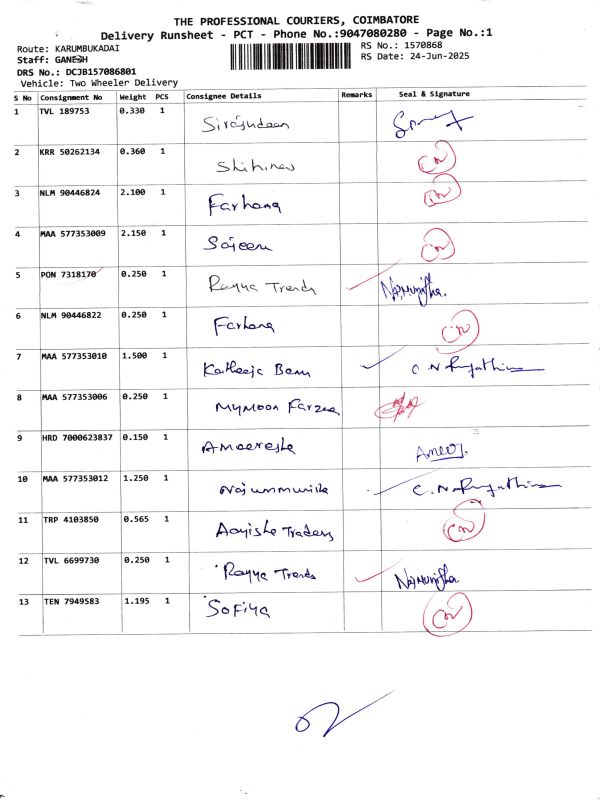 THE PROFESSIONAL COURIERS, COIMBATORE
Delivery Runsheet - PCT - Phone No.:9047080280 - Page No.:1
Route: KARUMBUKADAI RS No.: 1570868
Staff: GANESH RS Date: 24-Jun-2025
DRS No.: DCJB157086801
Vehicle: Two Wheeler Delivery
S No Consignment No Weight PCS Consignee Details Remarks Seal & Signature
1 TVL 189753 0.330 1 Sirajudeen
2 KRR 50262134 0.360 1
3 NLM 90446824 2.100 1 Farhana
4 MAA 577353009 2.150 1 Sajeen
5 PON 7318170 0.250 1 Rayya Trends
6 NLM 90446822 0.250 1 Farhana
7 MAA 577353010 1.500 1 Katheeja Banu
8 MAA 577353006 0.250 1 Mymoon Farzea
9 HRD 7000623837 0.150 1
10 MAA 577353012 1.250 1
11 TRP 4103850 0.565 1 Aayisha Traders
12 TVL 6699730 0.250 1 Rayya Trends
13 TEN 7949583 1.195 1 Sofiya